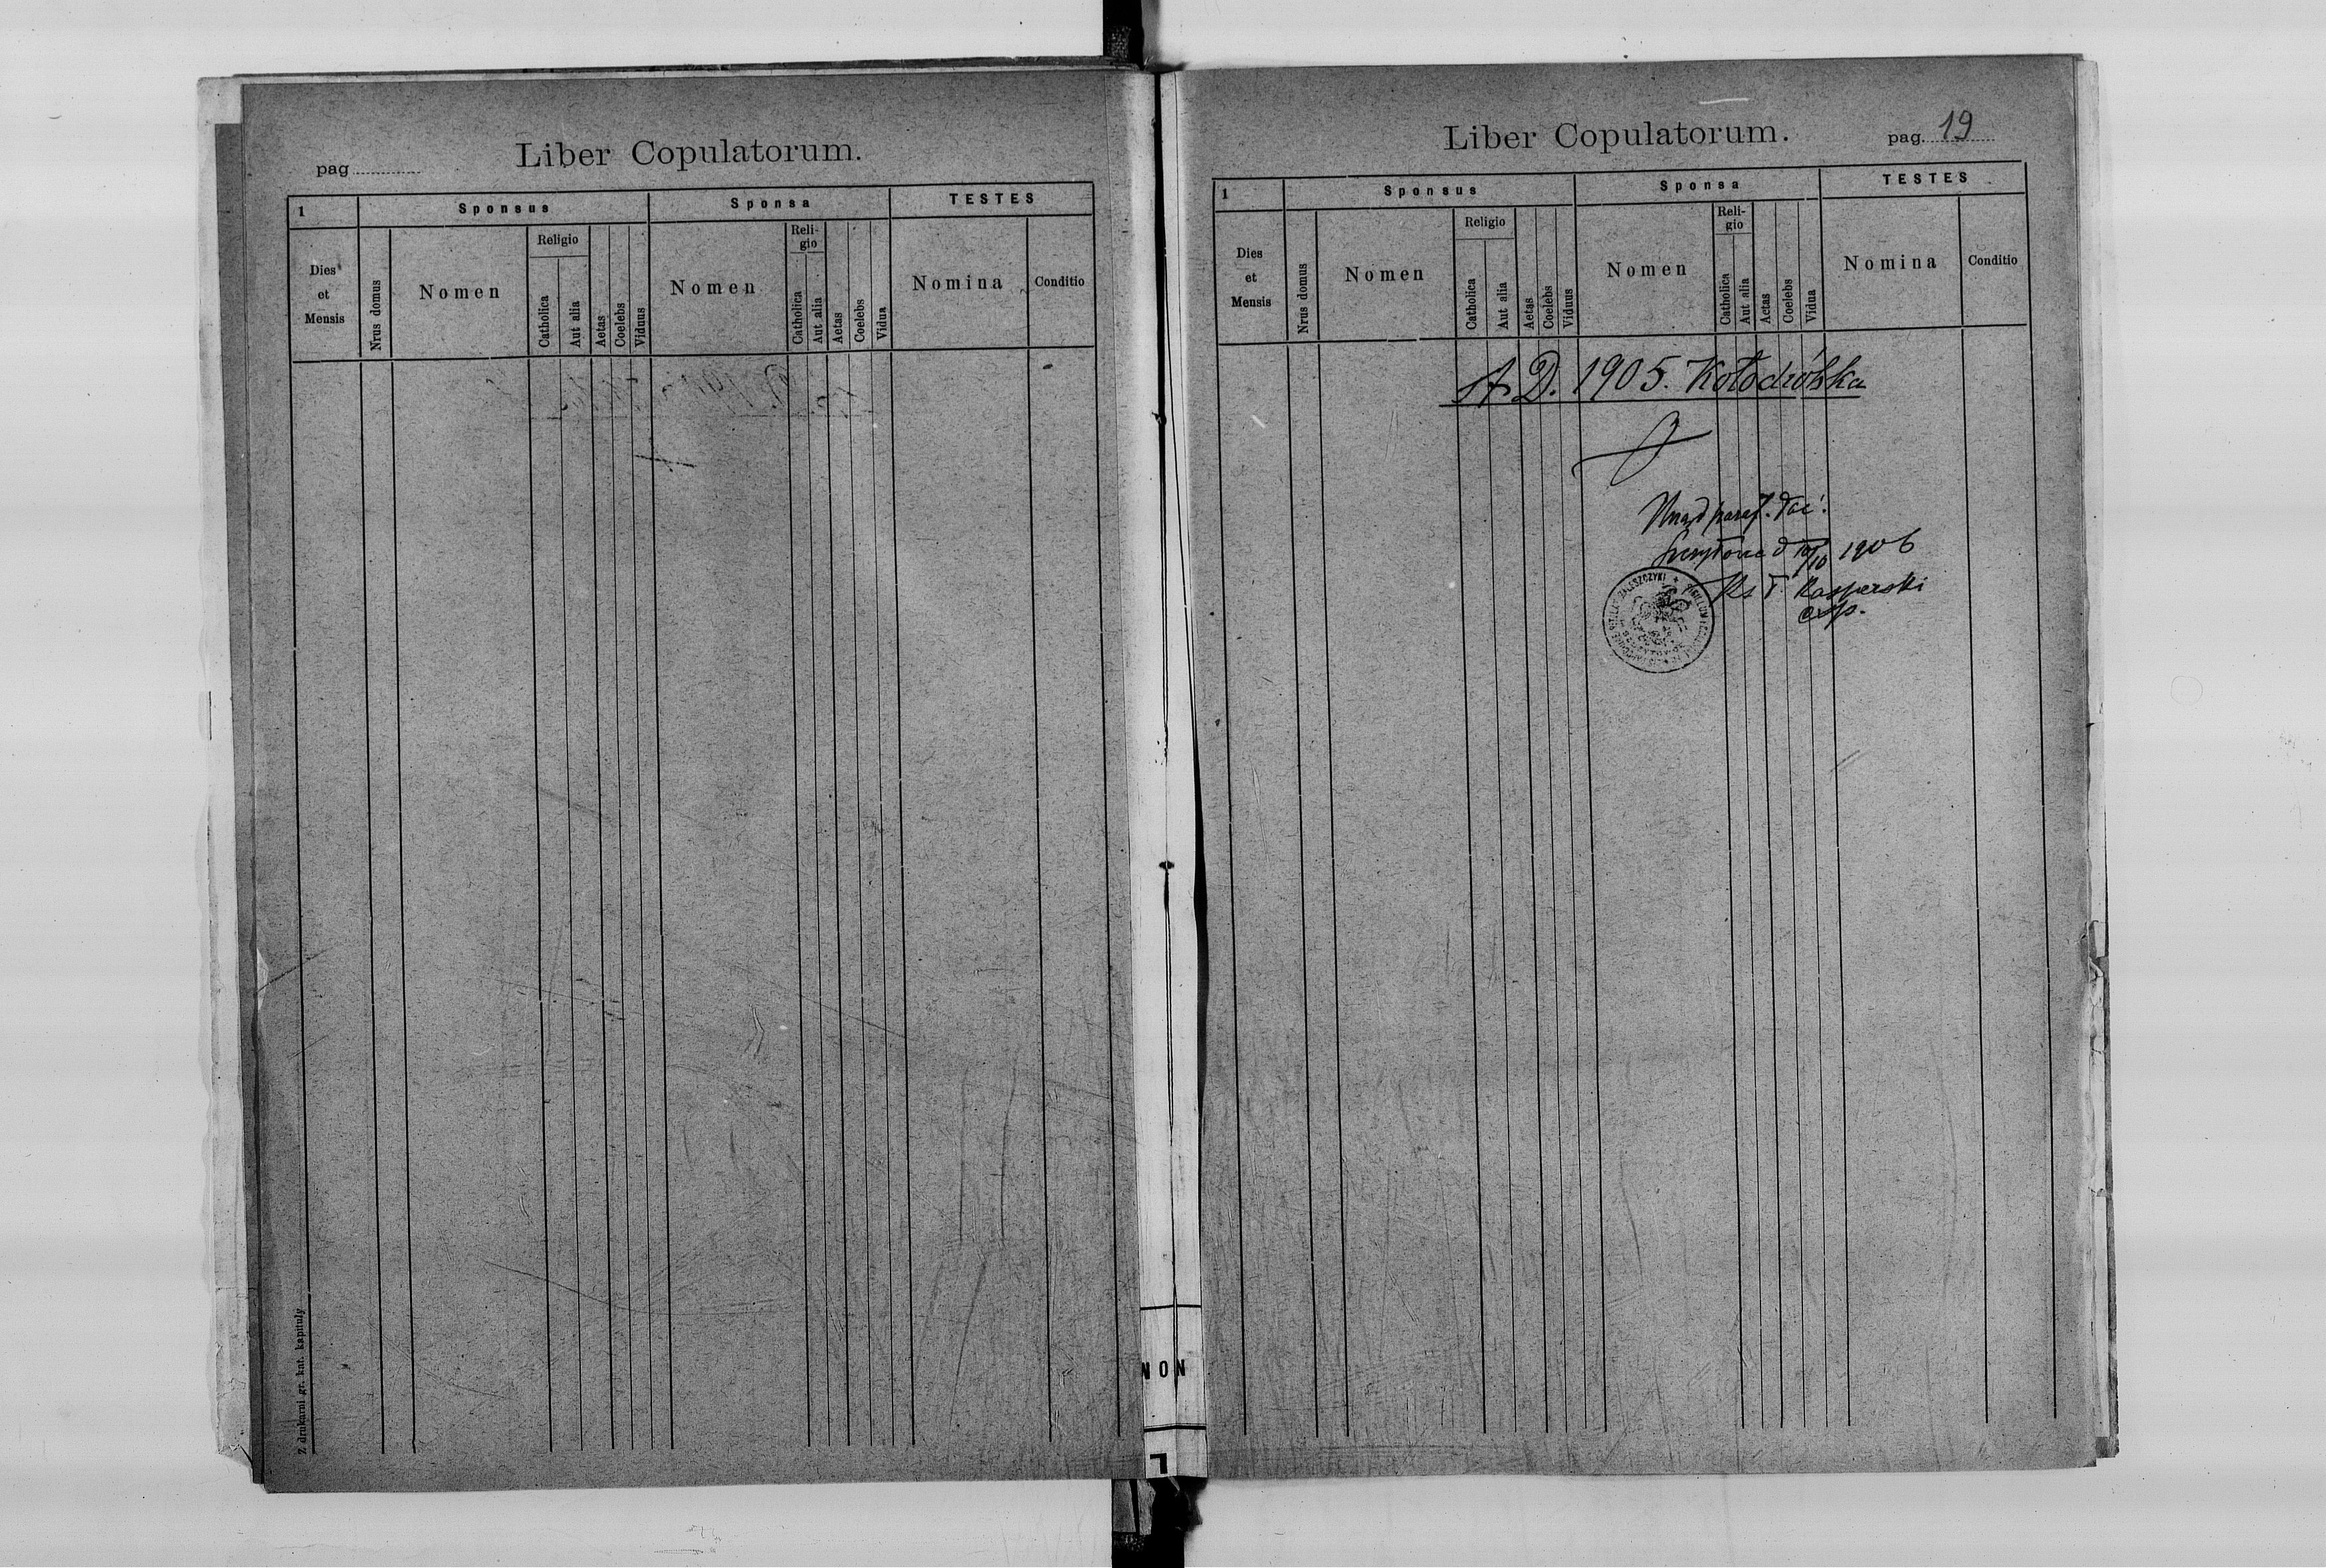 Liber Copulatorum.
pag
1
Sponsus
Sponsa
TESTES
Dies
et
Mensis
Nrus domus
Nomen
Religio
Catholica
Aut alia
Aetas
Coelebs
Viduus
Nomen
Reli-
gio
Catholica
Aut alia
Aetas
Coelebs
Vidua
Nomina
Conditio
Z drukarni gr. kat. kapituły
Liber Copulatorum.
pag. 19
1
Sponsus
Sponsa
TESTES
Dies
et
Mensis
Nrus domus
Nomen
Religio
Catholica
Aut alia
Aetas
Coelebs
Viduus
Nomen
Reli-
gio
Catholica
Aut alia
Aetas
Coelebs
Vidua
Nomina
Conditio
A D. 1905. Kołodróbka
Urząd paraf. łać.
d 10/10 1906
Ks T. Kasperski
exp.
NON